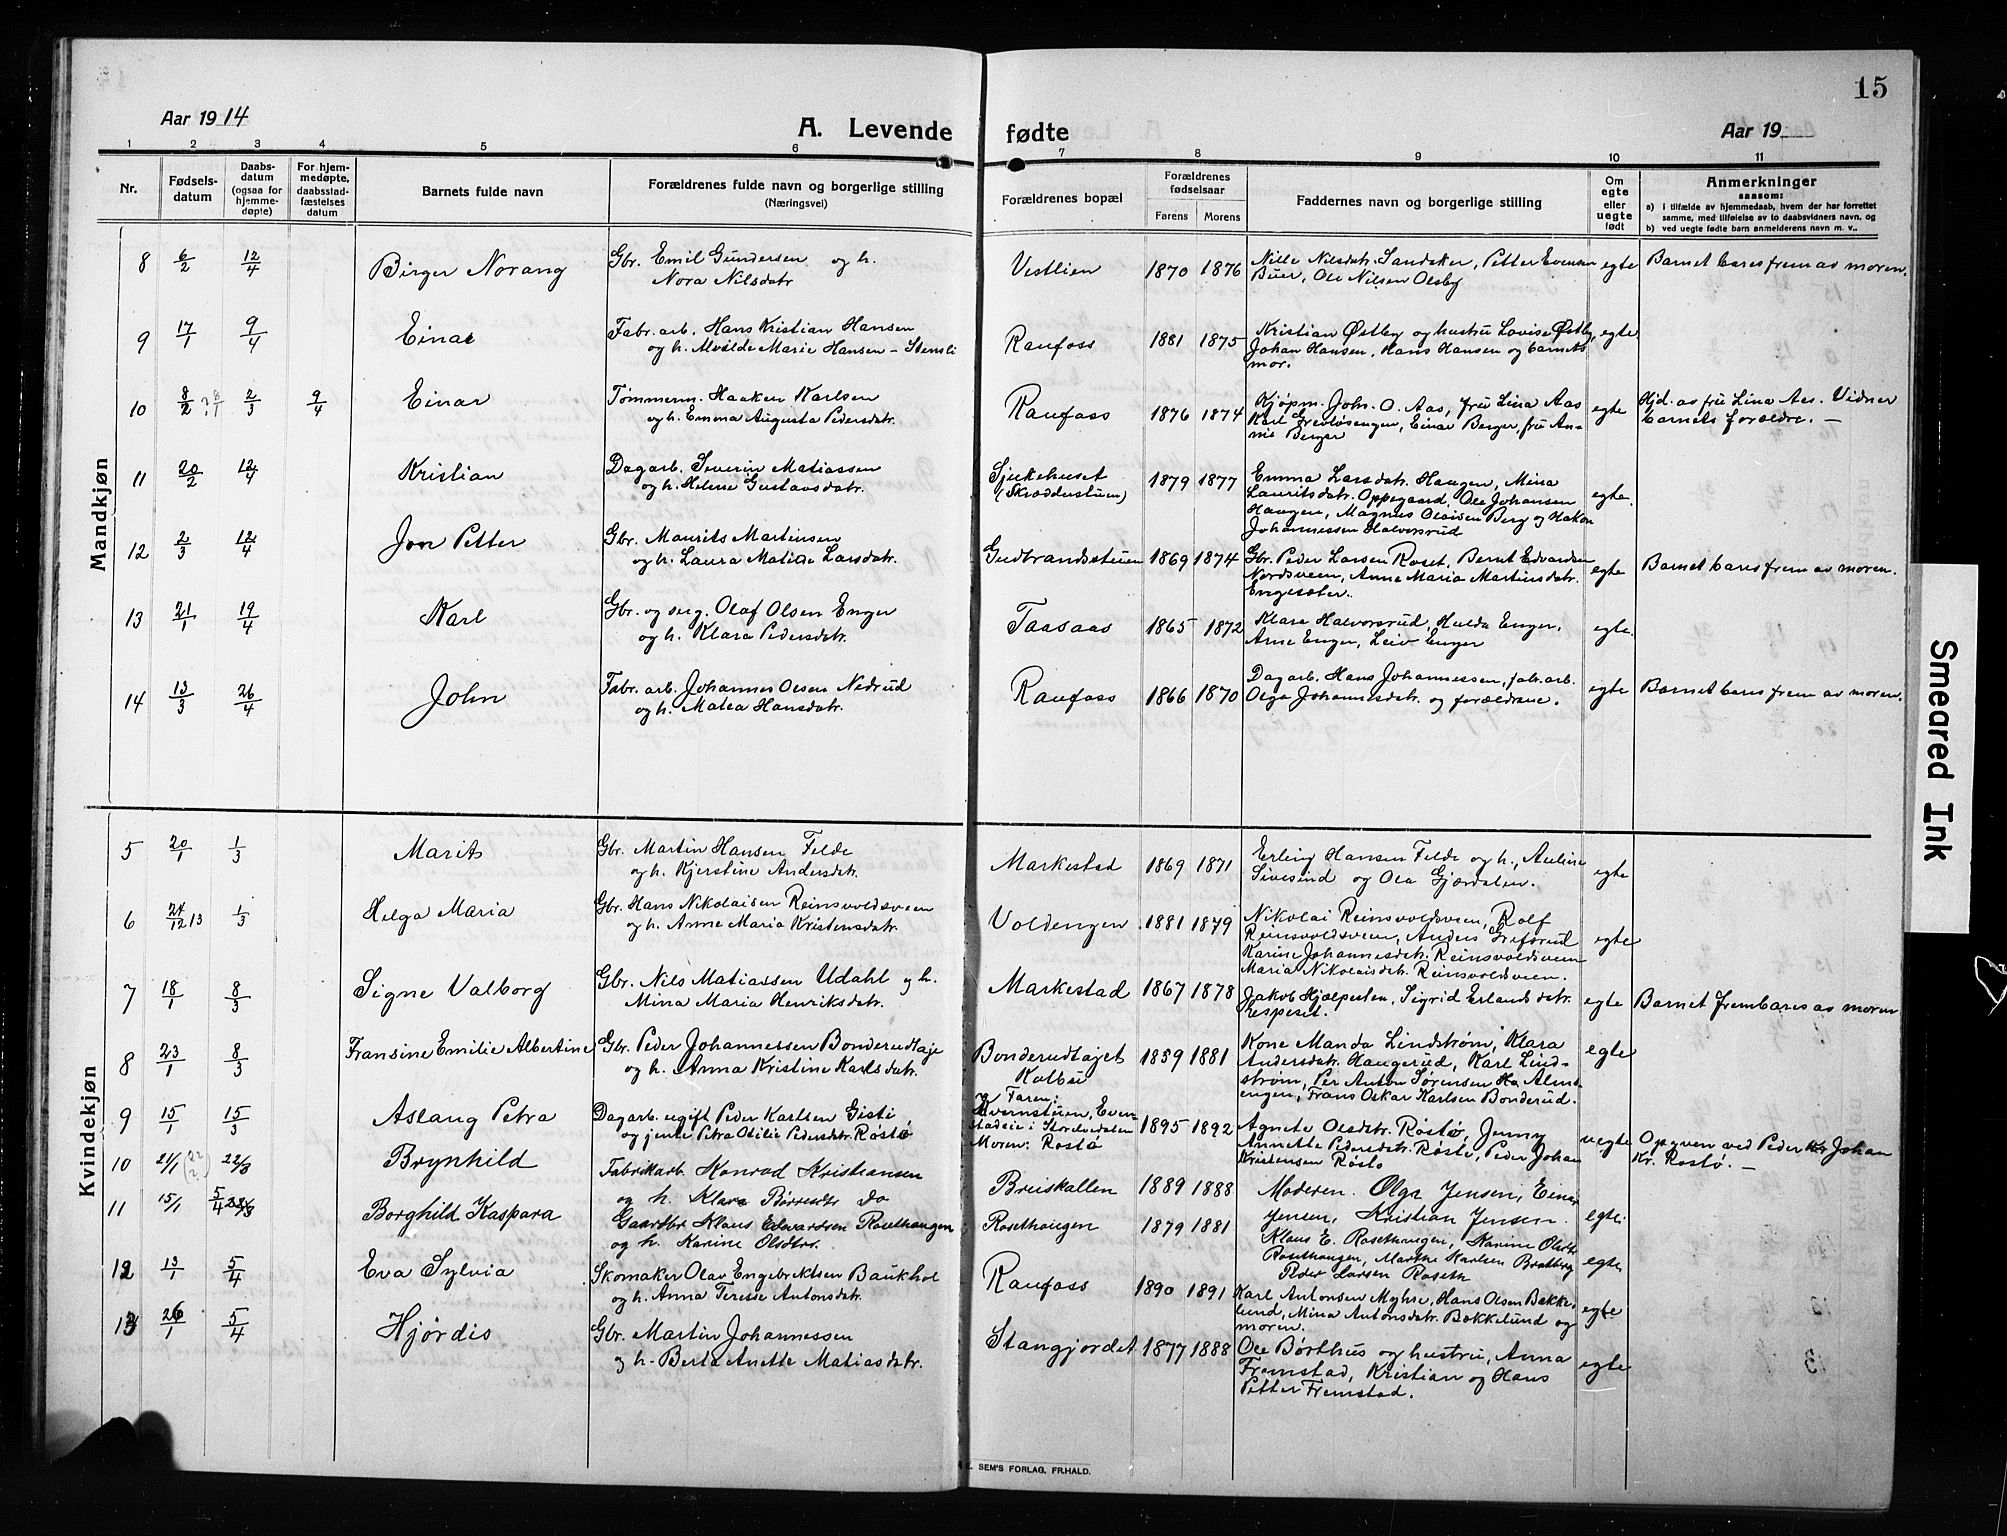 15
Aar 1914
A. Levende fødte
Aar 19
1 2 3 4 5 6 7 8 9 10 11
Nr.
Fødsels-
datum
Daabs-
datum
(ogsaa for
hjemme-
døpte)
For hjem-
medøpte,
daabsstad-
fæstelses
datum
Barnets fulde navn
Forældrenes fulde navn og borgerlige stilling
(Næringsvei)
Forældrenes bopæl
Forældrenes
fødselsaar
Farens Morens
Faddernes navn og borgerlige stilling
Om
egte
eller
uegte
født
Anmerkninger
saasom:
a) i tilfælde av hjemmedaab, hvem der har forrettet
samme, med tilføielse av to daabsvidners navn, og
b) ved uegte fødte barn anmelderens navn m. v..
Mandkjøn
8 6/2 12/4 Birger Norang Gbr. Emil Gundersen og h.
Nora Nilsdatr Vestlien 1870 1876 Nille Nilsdatr. Sandaker, Petter Evensen
Buer, Ole Nilsen Olsby egte Barnet bares frem av moren.
9 17/1 9/4 Einar Fabr. arb. Hans Kristian Hansen
og h. Alvilde Marie Hansen – Stensli Raufoss 1881 1875 Kristian Østby og hustru Lovise Østby,
Johan Hansen, Hans Hansen og barnets
mor. egte
10 8/2 ? 8/1 2/3 9/4 Einar Tømmerm. Haaken Karlsen
og h. Emma Augusta Pedersdatr. Raufoss 1876 1874 Kjøpm. John. O. Aas, fru Lina Aas
Karl Grevløsengen, Einar Berger, fru An-
nie Berger egte Hjd. av fru Lina Aas. Vidner
barnets forældre. –
11 20/2 12/4 Kristian Dagarb. Severin Matiassen
og h. Helene Gustavsdatr. Sjukehuset
(Skræddustuen) 1879 1877 Emma Larsdatr. Haugen, Mina
Lauritsdatr. Oppegaard, Ole Johansen
Haugen, Magnus Olaisen Berg og Hakon
Johannessen Halvorsrud egte.
12 2/3 12/4 Jon Petter Gbr. Maurits Martinsen
og h. Laura Matilde Larsdatr. Gudbrandstuen 1869 1874 Gbr. Peder Larsen Roset, Bernt Edvardsen
Nordsveen, Anne Maria Martinsdatr.
Engesæter. egte Barnet bares frem av moren.
13 21/1 19/4 Karl Gbr. og serg. Olaf Olsen Enger
og h. Klara Pedersdatr. Taasaas 1865 1872 Klara Halvorsrud, Hulda Enger,
Arne Enger, Leiv Enger egte.
14 13/3 26/4 John Fabr. arb. Johannes Olsen Nedrud
og h. Matea Hansdatr. Raufoss 1866 1870 Dagarb. Hans Johannessen, fab. arb.
Olga Johannesdatr. og forældrene. egte Barnet bares frem av moren.
Kvindekjøn
5 20/1 1/3 Marits Gbr. Martin Hansen Felde
og h. Kjerstine Andersdatr. Markestad 1869 1871 Erling Hansen Felde og h., Auline
Sivesind og Ola Gjærdalen. egte
6 24/12 13 1/3 Helga Maria Gbr. Hans Nikolaisen Reinsvoldsveen
og h. Anne Maria Kristensdatr. Voldengen 1881 1879 Nikolai Reinsvoldsveen, Rolf
Reinsvoldsveen, Anders Grefsrud
Karine Johannesdatr. Reinsvoldsveen
Maria Nikolaisdatr. Reinsvoldsveen. egte
7 18/1 8/3 Signe Valborg Gbr. Nils Matiassen Udahl og h.
Mina Maria Henriksdatr. Markestad 1867 1878 Jakob Hjælpesten, Sigrid Erlandsdatr. egte Barnet frembares av moren
8 23/1 8/3 Fransine Emilie Albertine Gbr. Peder Johannessen Bonderudtaje
og h. Anna Kristine Karlsdatr. Bonderudtajet
Kolbu 1859 1881 Kone Manda Lindstrøm, Klara
Andersdatr. Haugerud, Karl Lind-
strøm, Per Anton Sørensen Alm-
engen, Frans Oskar Karlsen Bonderud. egte
9 15/1 15/3 Aslaug Petra Dagarb. ugift Peder Karlsen Gisti
og jente Petra Otilie Pedersdatr. Røstø Faren:
Kvernstuen,
i Stordvedalen
Moren: Rostø 1895 1892 Agnete Olsdtr. Røstø, Jenny
Annette Pedersdatr. Røstø, Peder Johan
Kristensen Røsto uegte Opgiven ved Peder Johan
Kr. Rostø. –
10 21/1 (22/2) 22/3 Brynhild Fabrikkarb. Konrad Kristiansen
og h. Klara Børresdtr do Breiskallen 1889 1888 Moderen. Olga Jensen, Einar
Jensen, Kristian Jensen. egte.
11 15/1 5/4 Borghild Kaspara Gaardbr Klaus Edvardsen Rosethaugen
og h. Karine Olsdtr. Rosethaugen 1879 1881 Klaus E. Rosethaugen, Karine Olsdtr.
Rosethaugen, Marthe Karlsen Bratberg
Peder Larsen Roseth egte
12 13/1 5/4 Eva Sylvia Skomaker Olav Engebriktsen Baukhol
og h. Anna Terese Antonsdatr. Raufoss 1890 1891 Karl Antonsen Myhre, Hans Olsen Bække-
lund, Mina Antonsdatr. Bækkelund og
moren. egte
13 26/1 5/4 Hjørdis Gbr. Martin Johannessen
og h. Berta Anette Matiasdatr. Stangjordet 1877 1888 Ole Børthus og hustru, Anna
Fremstad, Kristian og Hans
Petter Fremstad. egte
SEM'S FORLAG, FR.HALD.
Smeared Ink